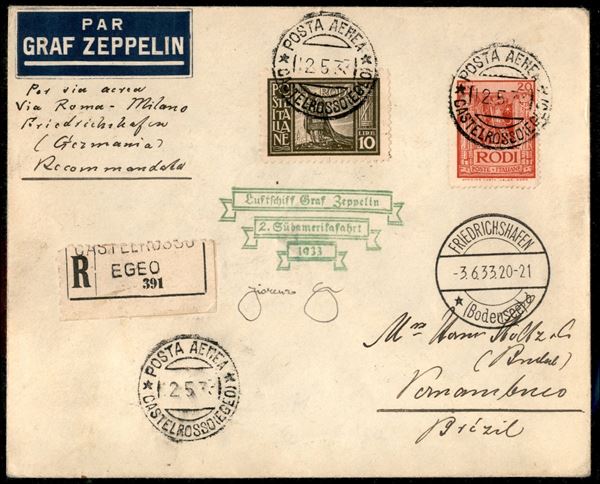 PAR
GRAF ZEPPELIN
Per via aerea
Via Roma - Milano
Friedrichshafen
(Germania)
Recommandata
POSTA AEREA
12.5.33
CASTELROSSO (EGEO)
POSTE ITALIANE
RODI
LIRE
10
POSTA AEREA
12.5.33
CASTELROSSO (EGEO)
20
RODI
POSTE ITALIANE
Luftschiff Graf Zeppelin
2. Südamerikafahrt
1933
CASTELROSSO
R EGEO
391
FRIEDRICHSHAFEN
-3.6.33.20-21
(Bodensee)
POSTA AEREA
12.5.33
CASTELROSSO (EGEO)
Hans Holtz
Pernambuco
Brézil